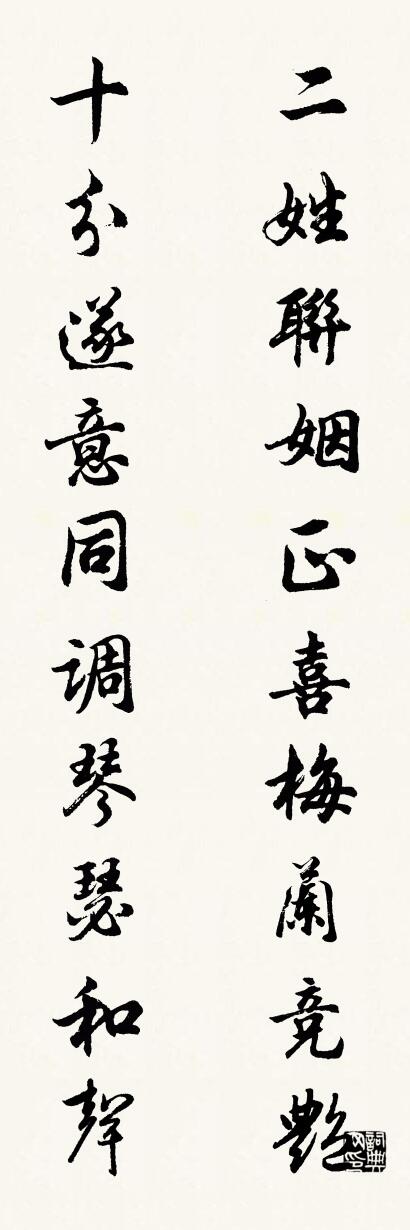 二姓聯姻正喜梅蘭竞艷
十分遂意同調琴瑟和聲